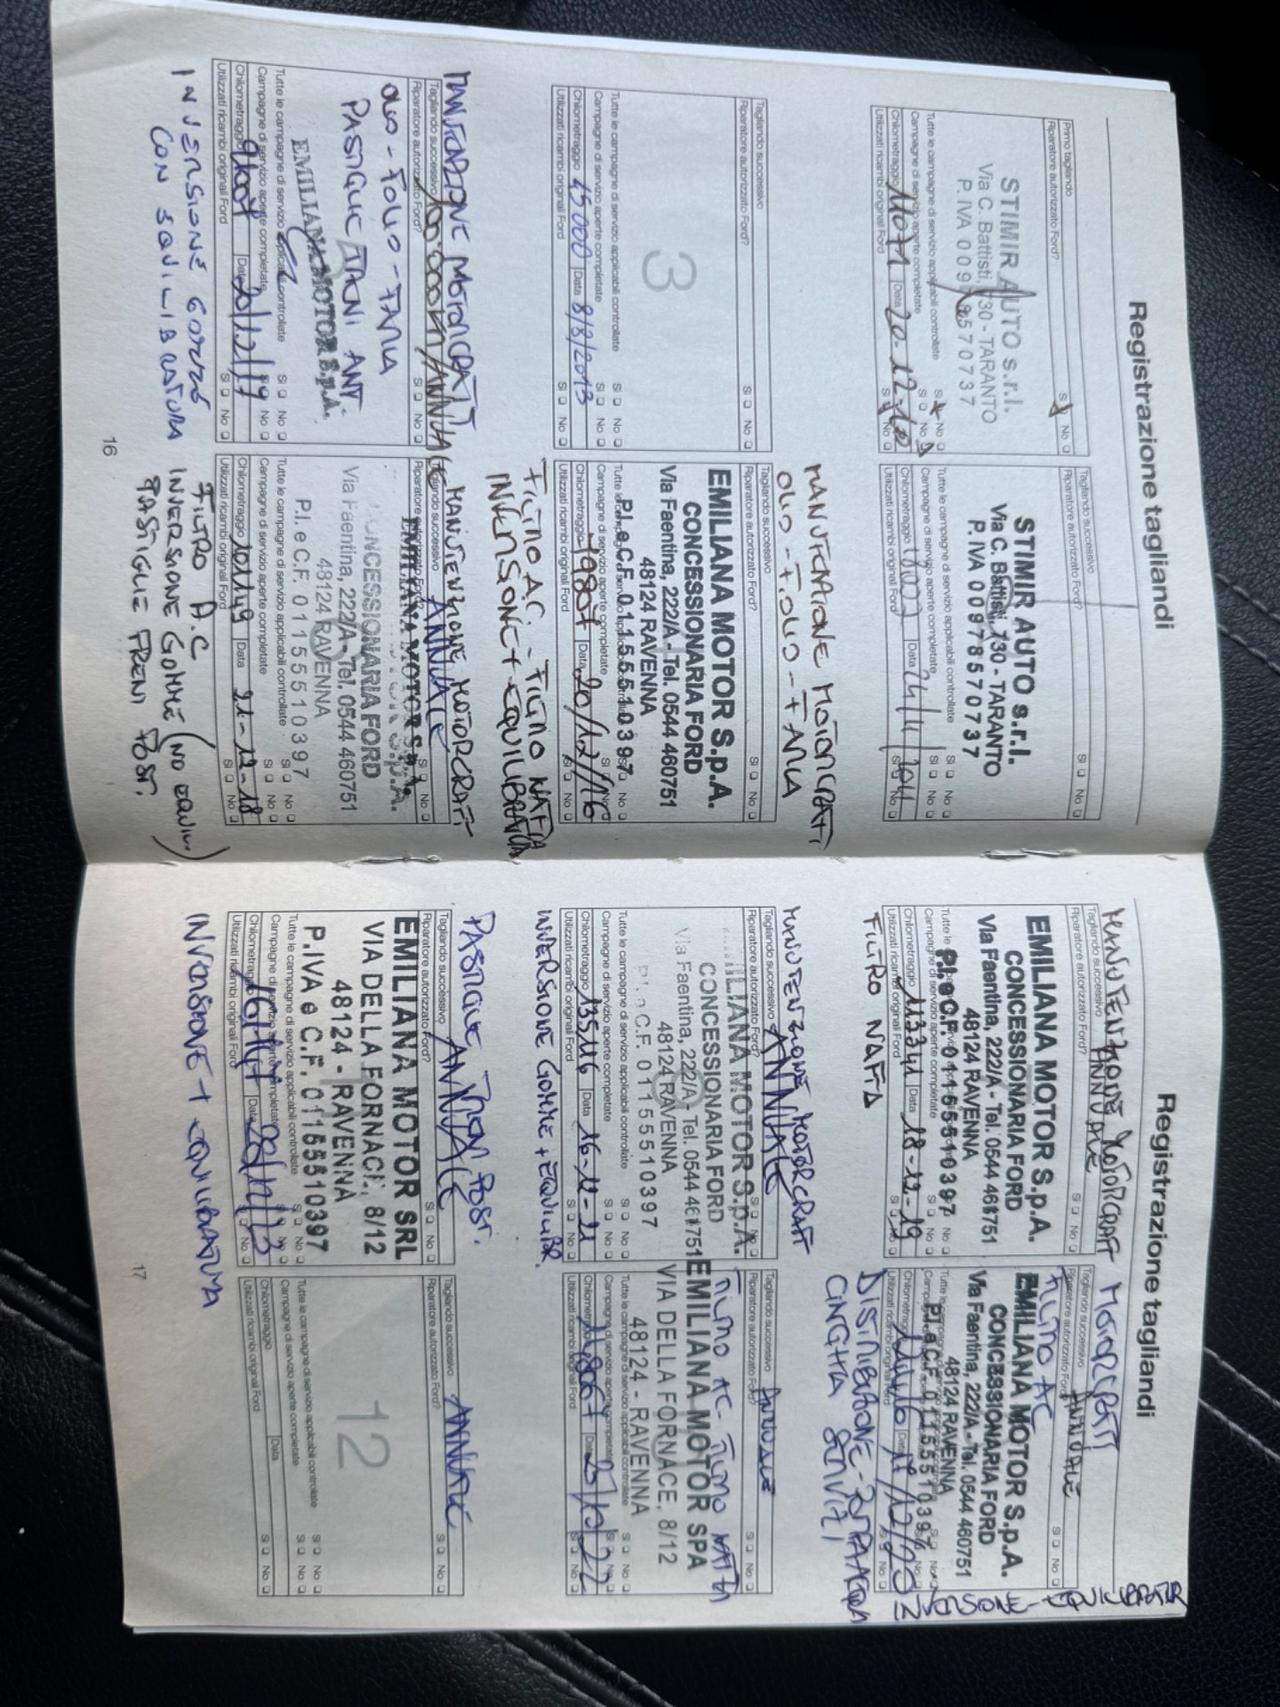 Registrazione tagliandi
Primo tagliando
Riparatore autorizzato Ford? Sì No
STIMIR AUTO s.r.l.
Via C. Battisti, 730 - TARANTO
P. IVA 00978570737
Tutte le campagne di servizio applicabili controllate Sì No
Campagne di servizio aperte completate Sì No
Chilometraggio Data 20-12-
Utilizzati ricambi originali Ford Sì No
Tagliando successivo
Riparatore autorizzato Ford? Sì No
STIMIR AUTO s.r.l.
Via C. Battisti, 730 - TARANTO
P. IVA 00978570737
Tutte le campagne di servizio applicabili controllate Sì No
Campagne di servizio aperte completate Sì No
Chilometraggio Data 24/11/2011
Utilizzati ricambi originali Ford Sì No
Tagliando successivo
Riparatore autorizzato Ford? Sì No
3
Tutte le campagne di servizio applicabili controllate Sì No
Campagne di servizio aperte completate Sì No
Chilometraggio 45000 Data 8/8/2013
Utilizzati ricambi originali Ford Sì No
MANUTENZIONE MOTORCRAFT
OLIO - F.OLIO - F.ARIA
Tagliando successivo
Riparatore autorizzato Ford? Sì No
EMILIANA MOTOR S.p.A.
CONCESSIONARIA FORD
Via Faentina, 222/A - Tel. 0544 460751
48124 RAVENNA
P.I. e C.F. 01155510397
Campagne di servizio aperte completate Sì No
Chilometraggio Data 20/12/16
Utilizzati ricambi originali Ford Sì No
FILTRO AC - FILTRO NAFTA
INVERSIONE + EQUILIBRATURA
MANUTENZIONE MOTORCRAFT
Tagliando successivo
Riparatore autorizzato Ford? Sì No
OLIO - F.OLIO - F.ARIA
PASTIGLIE FRENI ANT.
EMILIANA MOTOR S.p.A.
Tutte le campagne di servizio applicabili controllate Sì No
Campagne di servizio aperte completate Sì No
Chilometraggio Data 20/12/17
Utilizzati ricambi originali Ford Sì No
INVERSIONE GOMME
CON SQUILIBRATURA
MANUTENZIONE MOTORCRAFT
Tagliando successivo ANNUALE
Riparatore autorizzato Ford? Sì No
EMILIANA MOTOR S.p.A.
CONCESSIONARIA FORD
Via Faentina, 222/A - Tel. 0544 460751
48124 RAVENNA
P.I. e C.F. 01155510397
Tutte le campagne di servizio applicabili controllate Sì No
Campagne di servizio aperte completate Sì No
Chilometraggio Data 21-12-18
Utilizzati ricambi originali Ford Sì No
FILTRO A.C
INVERSIONE GOMME (NO EQUIL.)
PASTIGLIE FRENI POST.
16
Registrazione tagliandi
MANUTENZIONE MOTORCRAFT
Tagliando successivo ANNUALE
Riparatore autorizzato Ford? Sì No
EMILIANA MOTOR S.p.A.
CONCESSIONARIA FORD
Via Faentina, 222/A - Tel. 0544 461751
48124 RAVENNA
P.I. e C.F. 01155510397
Campagne di servizio aperte completate Sì No
Chilometraggio 113341 Data 18-12-19
Utilizzati ricambi originali Ford Sì No
FILTRO NAFTA
MOTORCRAFT
Tagliando successivo ANNUALE
Riparatore autorizzato Ford?
FILTRO AC
EMILIANA MOTOR S.p.A.
CONCESSIONARIA FORD
Via Faentina, 222/A - Tel. 0544 460751
48124 RAVENNA
P.I. e C.F. 01155510397
Chilometraggio Data
Utilizzati ricambi originali Ford
INVERSIONE - EQUILIBRATUR
CINGHIA SERVIZI
MANUTENZIONE MOTORCRAFT
Tagliando successivo ANNUALE
Riparatore autorizzato Ford? Sì No
EMILIANA MOTOR S.p.A.
CONCESSIONARIA FORD
Via Faentina, 222/A - Tel. 0544 461751
48124 RAVENNA
P.I. e C.F. 01155510397
Tutte le campagne di servizio applicabili controllate Sì No
Campagne di servizio aperte completate Sì No
Chilometraggio 135416 Data 16-12-21
Utilizzati ricambi originali Ford Sì No
INVERSIONE GOMME + EQUILIBR.
Tagliando successivo ANNUALE
Riparatore autorizzato Ford? Sì No
FILTRO AC - FILTRO NAFTA
EMILIANA MOTOR SPA
VIA DELLA FORNACE, 8/12
48124 - RAVENNA
Tutte le campagne di servizio applicabili controllate Sì No
Campagne di servizio aperte completate Sì No
Chilometraggio Data
Utilizzati ricambi originali Ford Sì No
PASTIGLIE FRENI POST.
Tagliando successivo ANNUALE
Riparatore autorizzato Ford? Sì No
EMILIANA MOTOR SRL
VIA DELLA FORNACE, 8/12
48124 - RAVENNA
P.IVA e C.F. 01155510397
Tutte le campagne di servizio applicabili controllate Sì No
Campagne di servizio aperte completate Sì No
Chilometraggio Data
Utilizzati ricambi originali Ford Sì No
INVERSIONE + EQUILIBRATURA
Tagliando successivo ANNUALE
Riparatore autorizzato Ford? Sì No
12
Tutte le campagne di servizio applicabili controllate Sì No
Campagne di servizio aperte completate Sì No
Chilometraggio Data
Utilizzati ricambi originali Ford Sì No
17